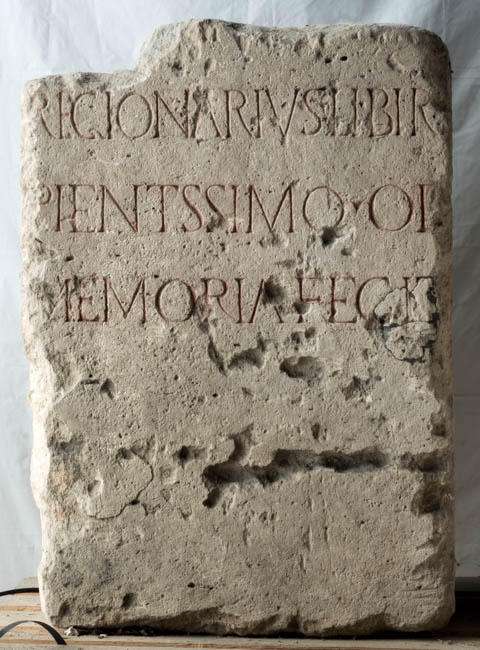 RIGIONARIVS LIBIR
PIENTSSIMO OI
MEMORIA FECIT